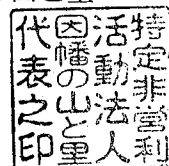 特定非営利
活動法人
因幡の山と里
代表之印